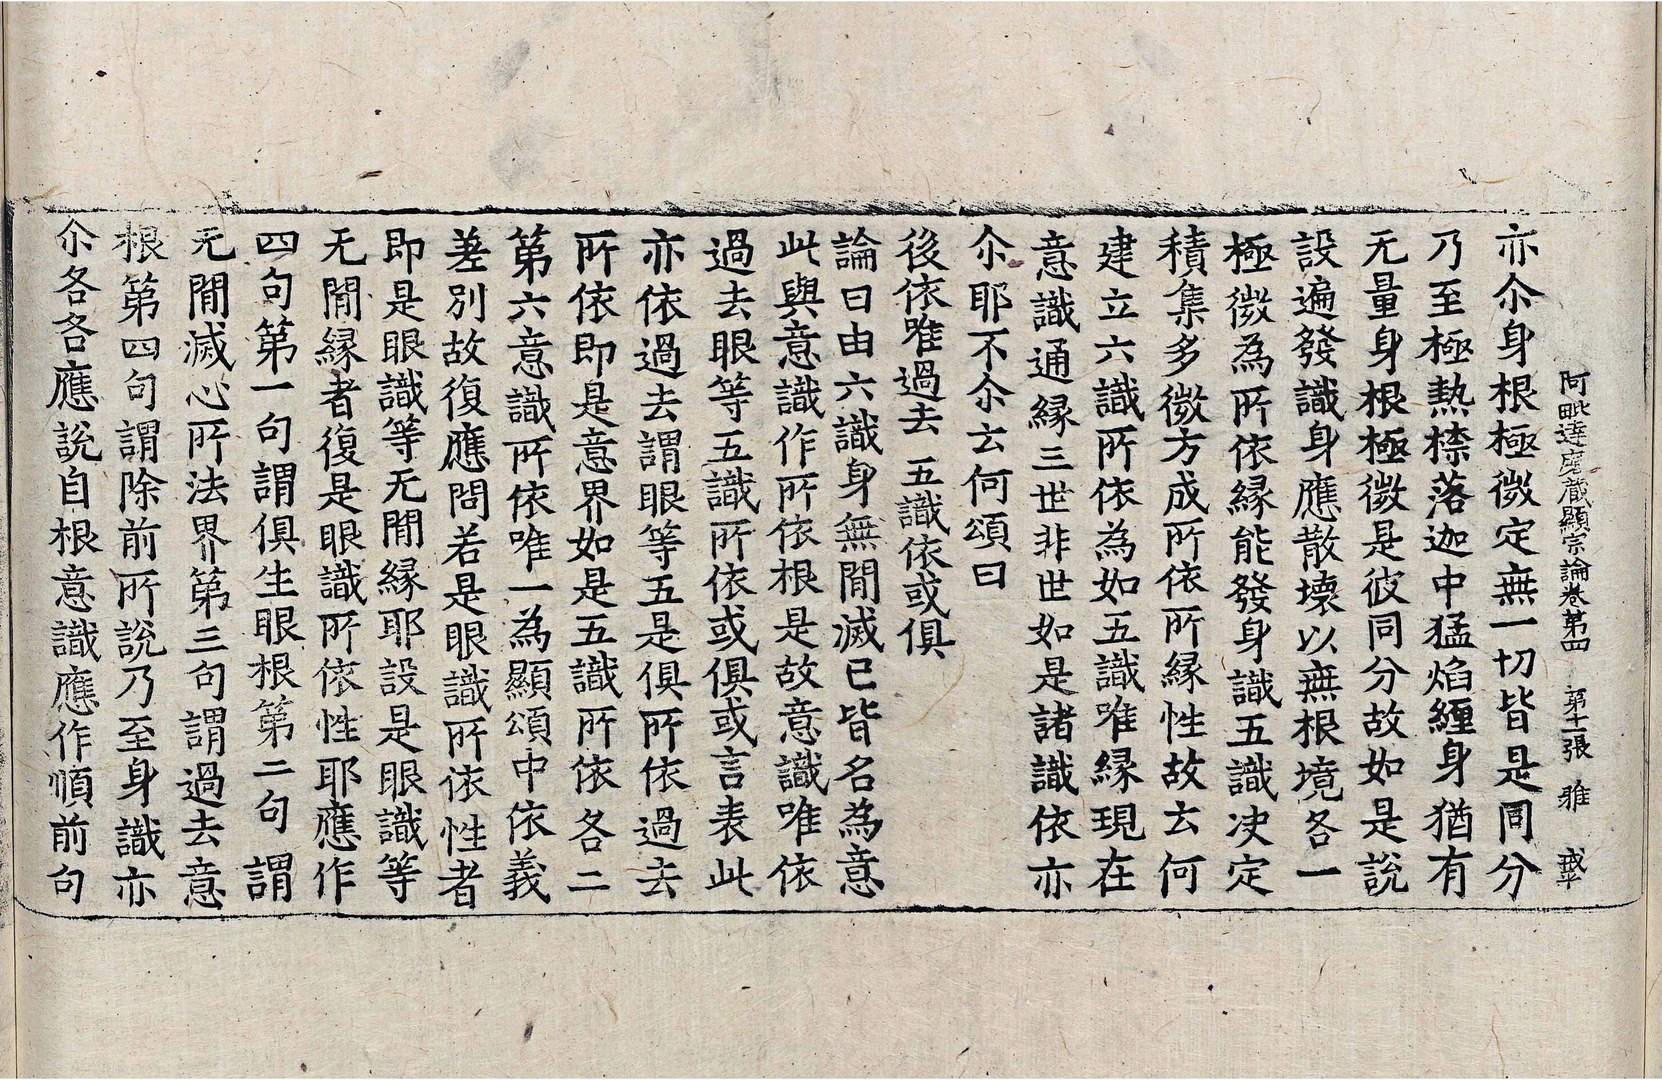 阿毗達磨藏顯宗論卷第四　第十一張　雅
亦尒身根極微定無一切皆是同分
乃至極熱㮈落迦中猛焰纏身猶有
无量身根極微是彼同分故如是說
設遍發識身應散壞以無根境各一
極微為所依緣能發身識五識决定
積集多微方成所依所緣性故云何
建立六識所依為如五識唯緣現在
意識通緣三世非世如是諸識依亦
尒耶不尒云何頌曰
後依唯過去　五識依或俱
論曰由六識身無閒滅已皆名為意
此與意識作所依根是故意識唯依
過去眼等五識所依或俱或言表此
亦依過去謂眼等五是俱所依過去
所依即是意界如是五識所依各二
第六意識所依唯一為顯頌中依義
差別故復應問若是眼識所依性者
即是眼識等无閒緣耶設是眼識等
无閒緣者復是眼識所依性耶應作
四句第一句謂俱生眼根第二句謂
无閒滅心所法界第三句謂過去意
根第四句謂除前所說乃至身識亦
尒各各應說自根意識應作順前句